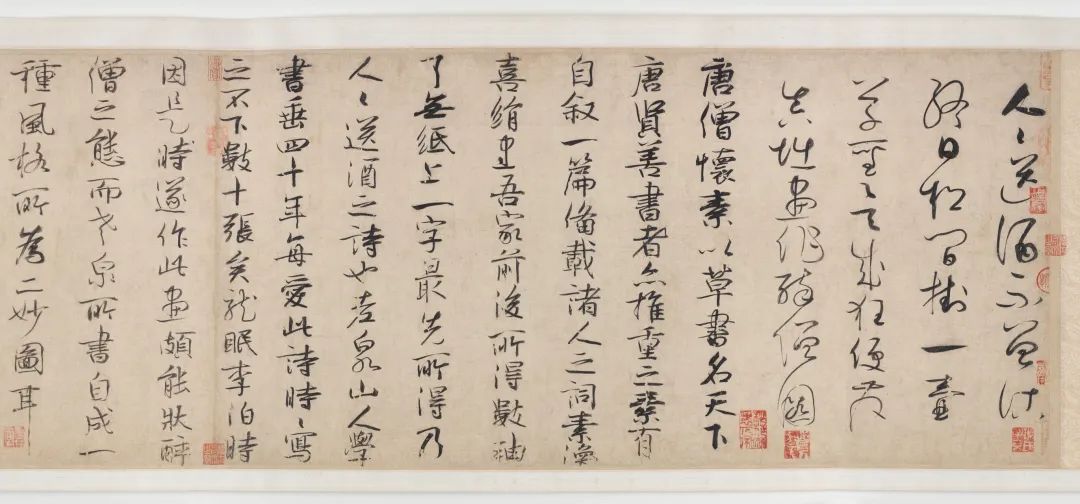 人々送酒不曾沽
終日松間掛一壺
草聖欲成狂便發
真堪畫作醉僧圖
唐僧懷素以草書名天下
唐賢善書者亦推重之有
自叙一篇備載諸人之詞素
喜絹書吾家前後所得數軸
了無紙上一字最先所得乃
人々送酒之詩也老泉山人學
書垂四十年每愛此詩時々寫
之不下數十張矣龍眠李伯時
因是時遂作此畫頗能狀醉
僧之態而老泉所書自成一
種風格所為二妙圖耳